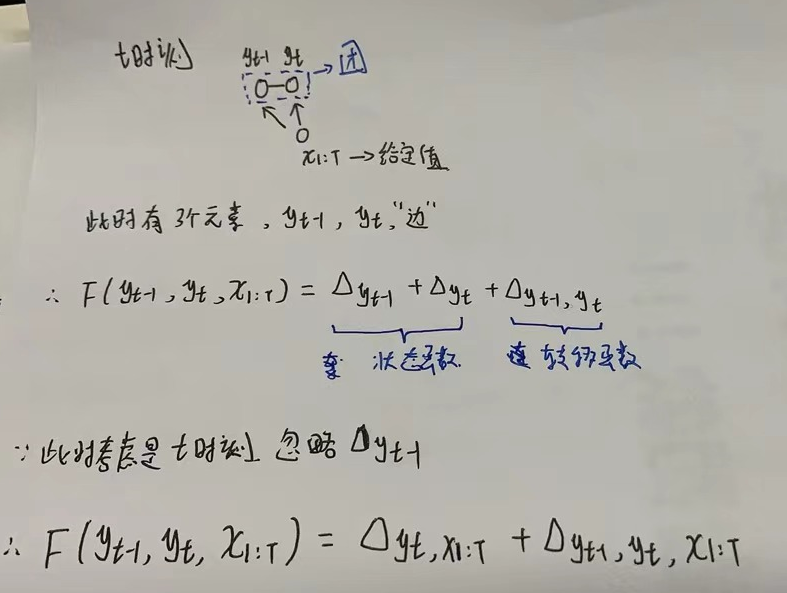 t时刻 y_{t-1} y_t → 团
x_{1:T} → 给定值
此时有3个元素, y_{t-1}, y_t, "边"
∴ F(y_{t-1}, y_t, x_{1:T}) = Δy_{t-1} + Δy_t + Δy_{t-1}, y_t
状态函数 转移函数
∵ 此时考虑是t时刻 忽略 Δy_{t-1}
∴ F(y_{t-1}, y_t, x_{1:T}) = Δy_t, x_{1:T} + Δy_{t-1}, y_t, x_{1:T}